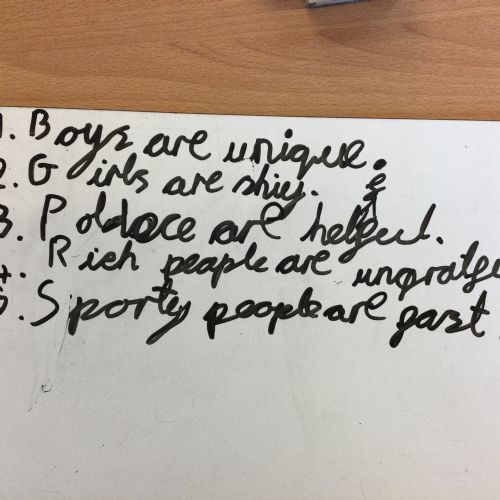 1. Boys are unique.
2. Girls are shiy.
3. Poldoce are helgeul.
4. Rich peaple are ungratgu
5. Sporty people are gast.